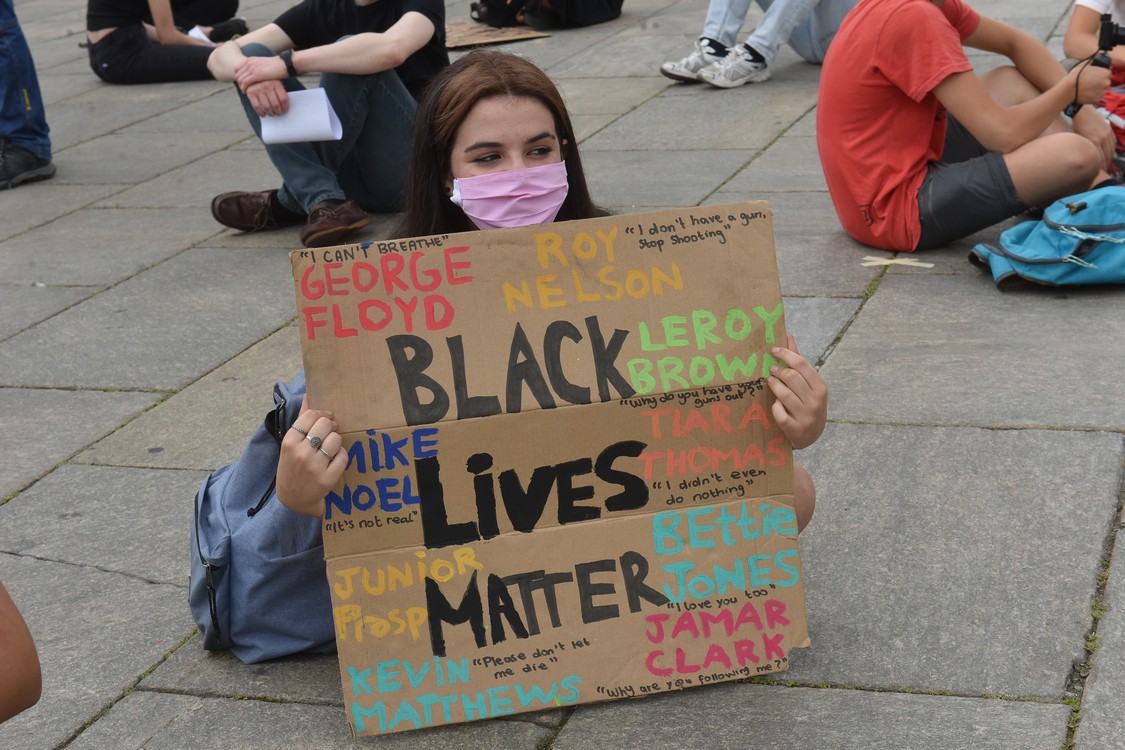 "I CAN'T BREATHE"
GEORGE
FLOYD
ROY
NELSON
"I don't have a gun,
Stop shooting"
BLACK
LEROY
BROWN
"Why do you have your
guns out?"
MIKE
NOEL
"It's not real"
LIVES
TIARA
THOMAS
"I didn't even
do nothing"
JUNIOR
Prosp
MATTER
BEttie
JONES
"I love you too"
KEVIN
MATTHEWS
"Please don't let
me die"
JAMAR
CLARK
"Why are you following me?"